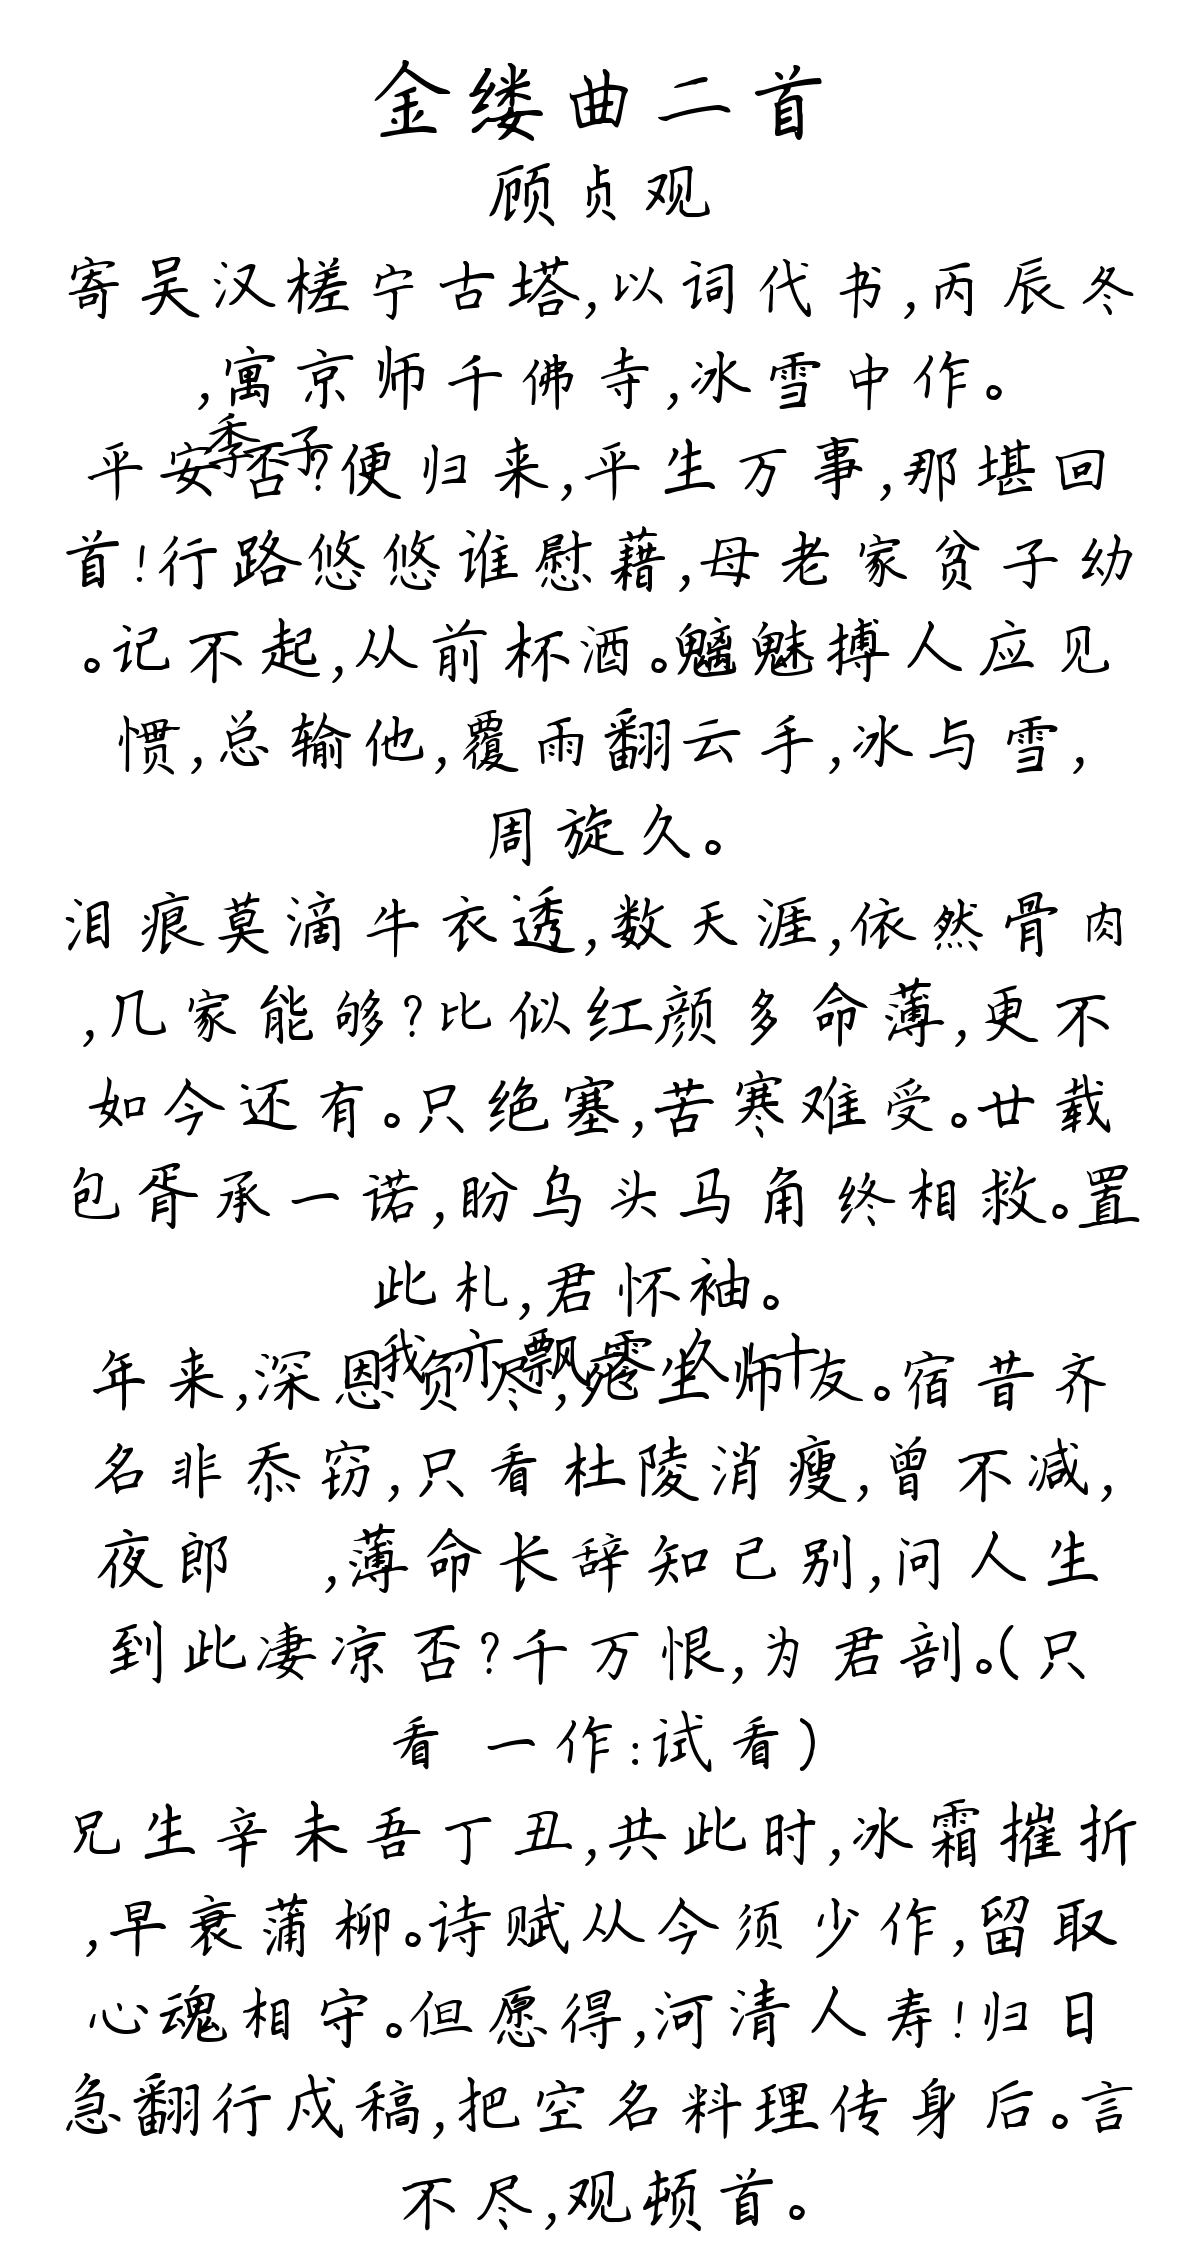 金缕曲二首
顾贞观
寄吴汉槎宁古塔,以词代书,丙辰冬
,寓京师千佛寺,冰雪中作。
季子
平安否?便归来,平生万事,那堪回
首!行路悠悠谁慰藉,母老家贫子幼
。记不起,从前杯酒。魑魅搏人应见
惯,总输他,覆雨翻云手,冰与雪,
周旋久。
泪痕莫滴牛衣透,数天涯,依然骨肉
,几家能够?比似红颜多命薄,更不
如今还有。只绝塞,苦寒难受。廿载
包胥承一诺,盼乌头马角终相救。置
此札,君怀袖。
我亦飘零久!十
年来,深恩负尽,死生师友。宿昔齐
名非忝窃,只看杜陵消瘦,曾不减,
夜郎 ,薄命长辞知己别,问人生
到此凄凉否?千万恨,为君剖。(只
看 一作:试看)
兄生辛未吾丁丑,共此时,冰霜摧折
,早衰蒲柳。诗赋从今须少作,留取
心魂相守。但愿得,河清人寿!归日
急翻行戍稿,把空名料理传身后。言
不尽,观顿首。